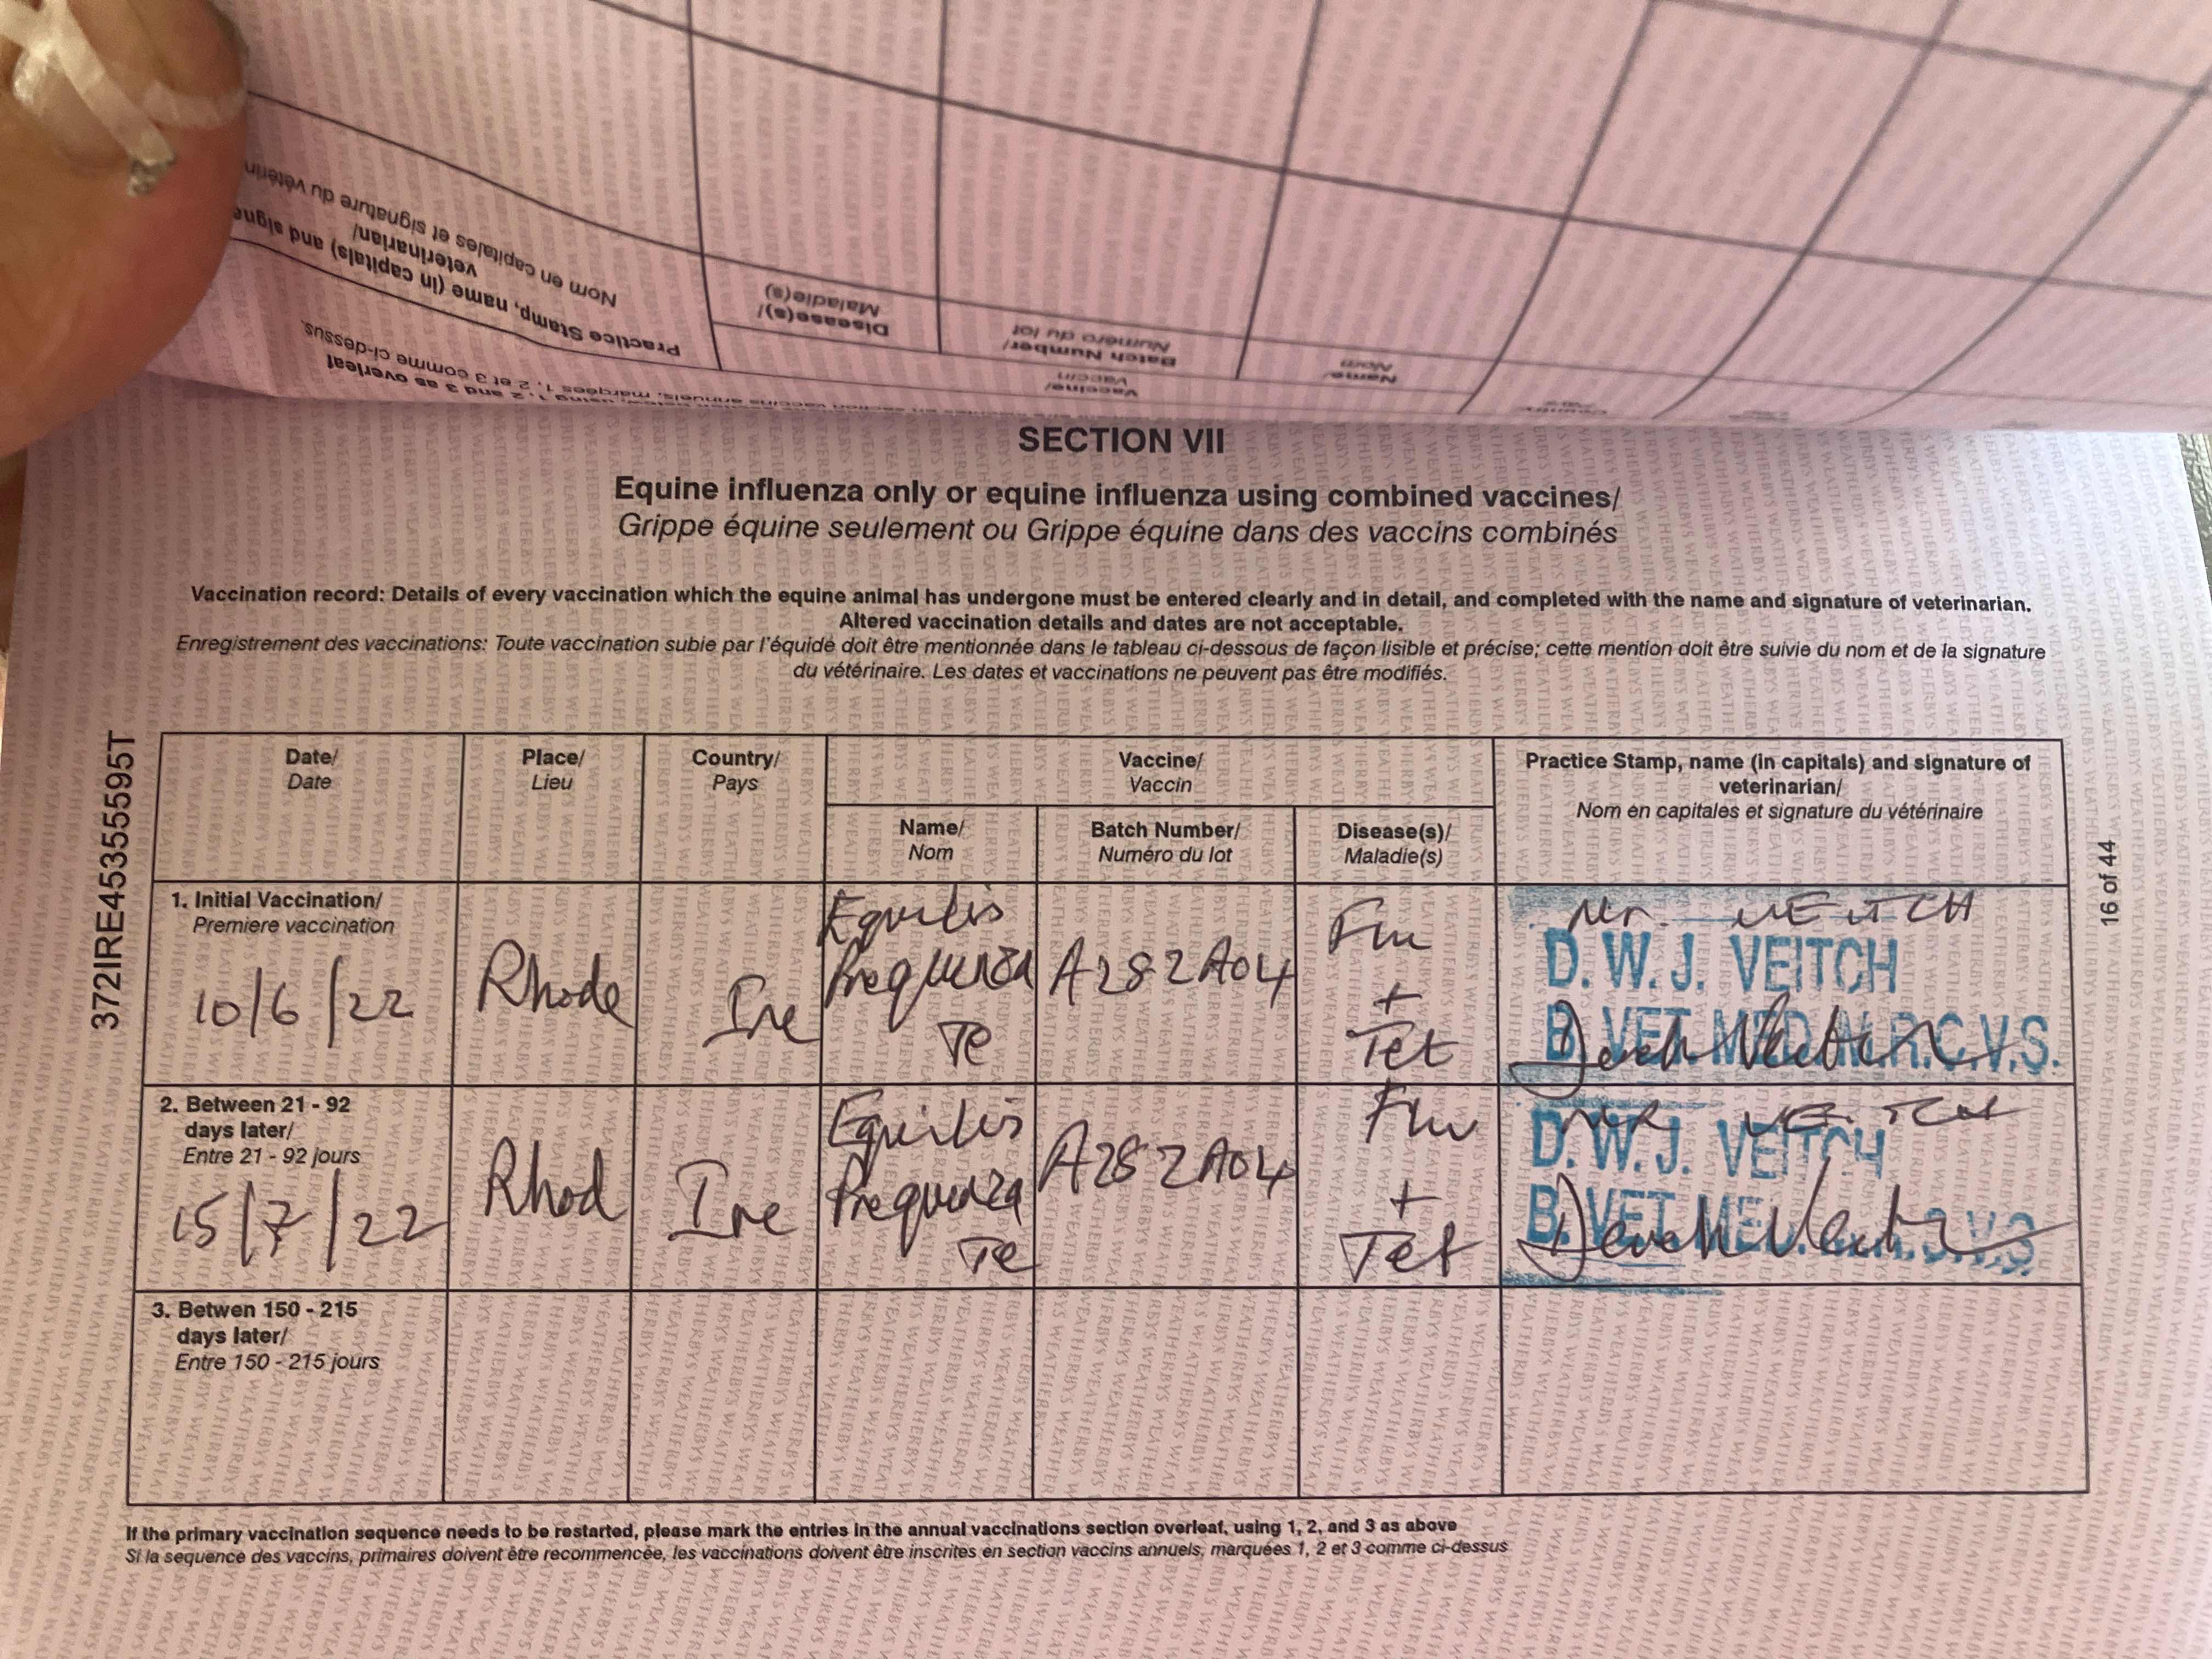 Nom en capitales et signature du vétérin
Practice Stamp, name (in capitals) and signa
veterinarian/
Disease(s)/
Maladie(s)
Vaccine/
Vaccin
Batch Number/
Numéro du lot
Name/
Nom
1, 2 and 3 as overleaf
marquées 1, 2 et 3 comme ci-dessus.
SECTION VII
Equine influenza only or equine influenza using combined vaccines/
Grippe équine seulement ou Grippe équine dans des vaccins combinés
Vaccination record: Details of every vaccination which the equine animal has undergone must be entered clearly and in detail, and completed with the name and signature of veterinarian.
Altered vaccination details and dates are not acceptable.
Enregistrement des vaccinations: Toute vaccination subie par l'équidé doit être mentionnée dans le tableau ci-dessous de façon lisible et précise; cette mention doit être suivie du nom et de la signature
du vétérinaire. Les dates et vaccinations ne peuvent pas être modifiés.
372IRE45355595T
16 of 44
Date/
Date
Place/
Lieu
Country/
Pays
Vaccine/
Vaccin
Name/
Nom
Batch Number/
Numéro du lot
Disease(s)/
Maladie(s)
Practice Stamp, name (in capitals) and signature of
veterinarian/
Nom en capitales et signature du vétérinaire
1. Initial Vaccination/
Premiere vaccination
10/6/22
Rhode
Ire
Equilis
Prequenza
Te
A282A04
Flu
+
Tet
Mr. VEITCH
D. W. J. VEITCH
B. VET. MED. M.R.C.V.S.
Derek Veitch
2. Between 21 - 92
days later/
Entre 21 - 92 jours
15/7/22
Rhod
Ire
Equilis
Prequenza
Te
A282A04
Flu
+
Tet
MR VEITCH
D. W. J. VEITCH
B. VET. MED.
Derek Veitch
3. Betwen 150 - 215
days later/
Entre 150 - 215 jours
If the primary vaccination sequence needs to be restarted, please mark the entries in the annual vaccinations section overleaf, using 1, 2, and 3 as above
Si la sequence des vaccins, primaires doivent être recommencée, les vaccinations doivent être inscrites en section vaccins annuels, marquées 1, 2 et 3 comme ci-dessus